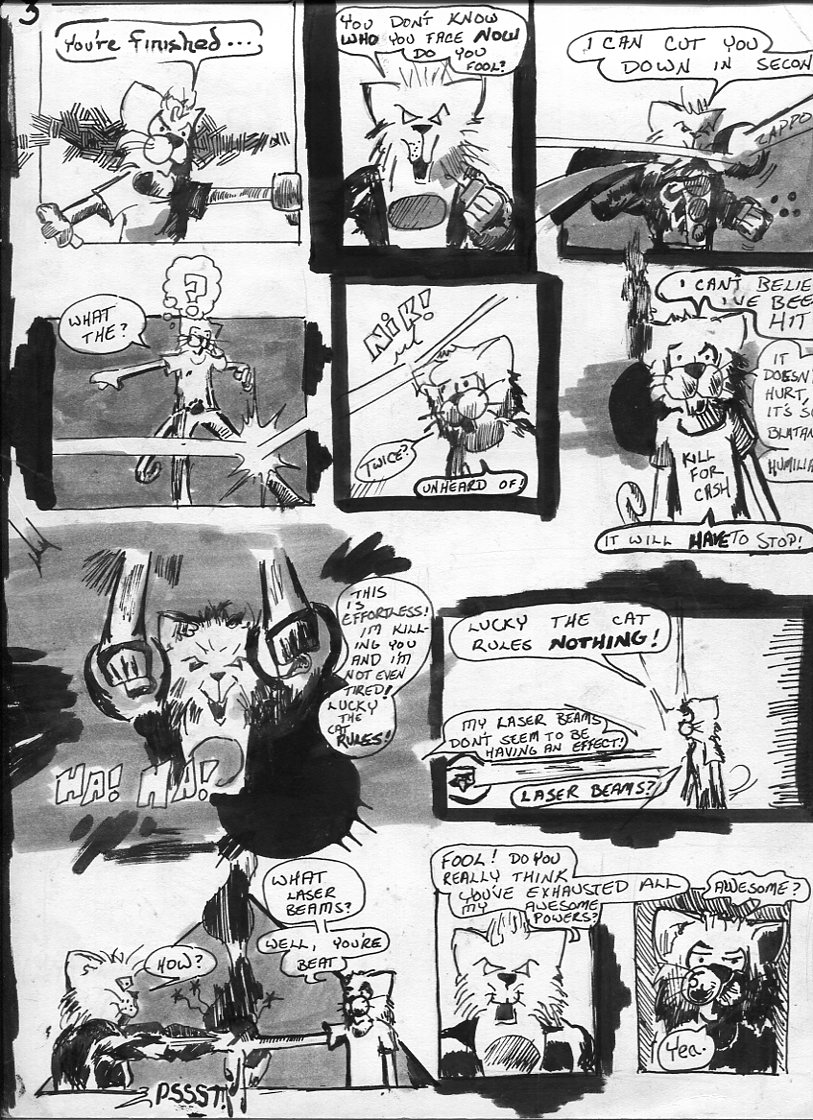 3
You're finished...
YOU DON'T KNOW
WHO YOU FACE NOW
DO YOU
FOOL?
I CAN CUT YOU
DOWN IN SECON
ZAPPO
?
WHAT
THE?
NIK!
TWICE?
UNHEARD OF!
I CAN'T BELIE
I'VE BEE
HIT
IT
DOESN'
HURT,
IT'S SO
BLATAN
HUMILIA
KILL
FOR
CASH
IT WILL HAVE TO STOP!
THIS
IS
EFFORTLESS!
I'M KILL-
ING YOU
AND I'M
NOT EVEN
TIRED!
LUCKY
THE
CAT
RULES!
HA! HA!
LUCKY THE CAT
RULES NOTHING!
MY LASER BEAMS
DON'T SEEM TO BE
HAVING AN EFFECT!
LASER BEAMS?
WHAT
LASER
BEAMS?
HOW?
WELL, YOU'RE
BEAT
PSSST!
FOOL! DO YOU
REALLY THINK
YOU'VE EXHAUSTED ALL
MY AWESOME
POWERS?
AWESOME?
Yea.